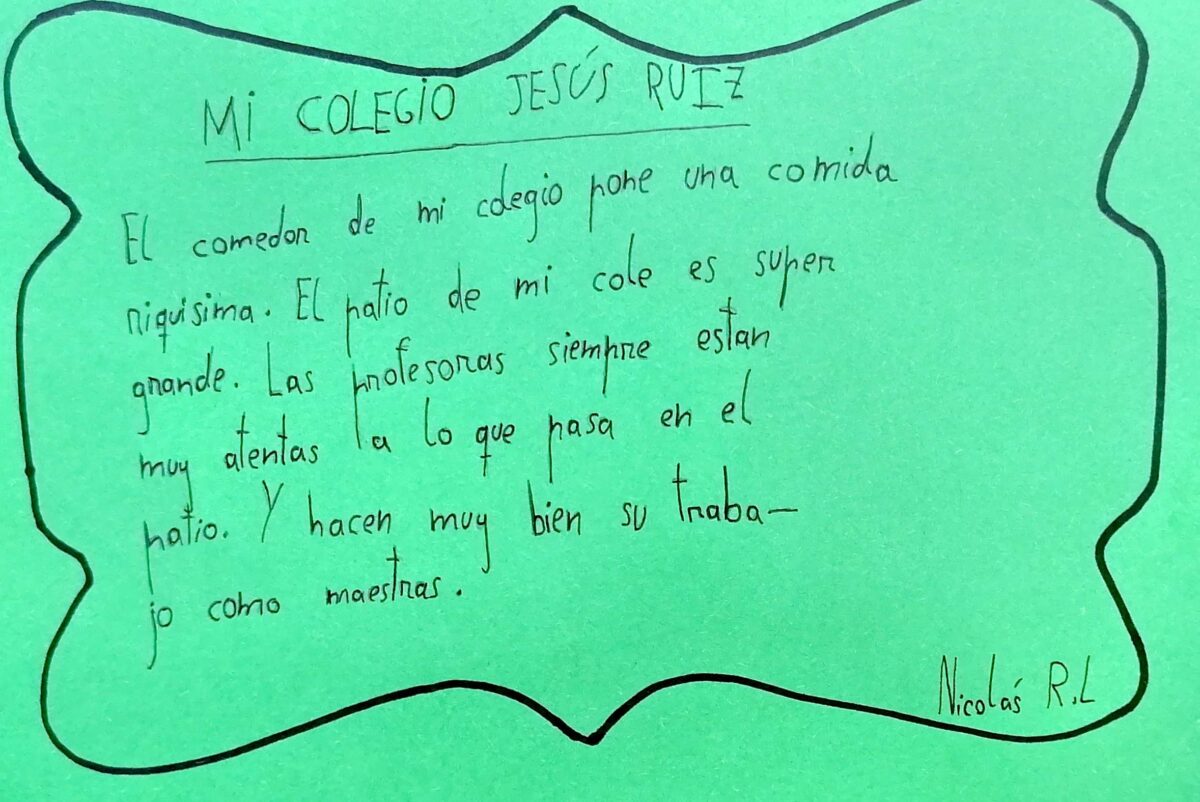 Mi COLEGiO JESÚS RUIZ
El comedor de mi colegio pone una comida
riquisima. El patio de mi cole es super
grande. Las profesoras siempre estan
muy atentas a lo que pasa en el
patio. Y hacen muy bien su traba-
jo como maestras.
Nicolás R.L